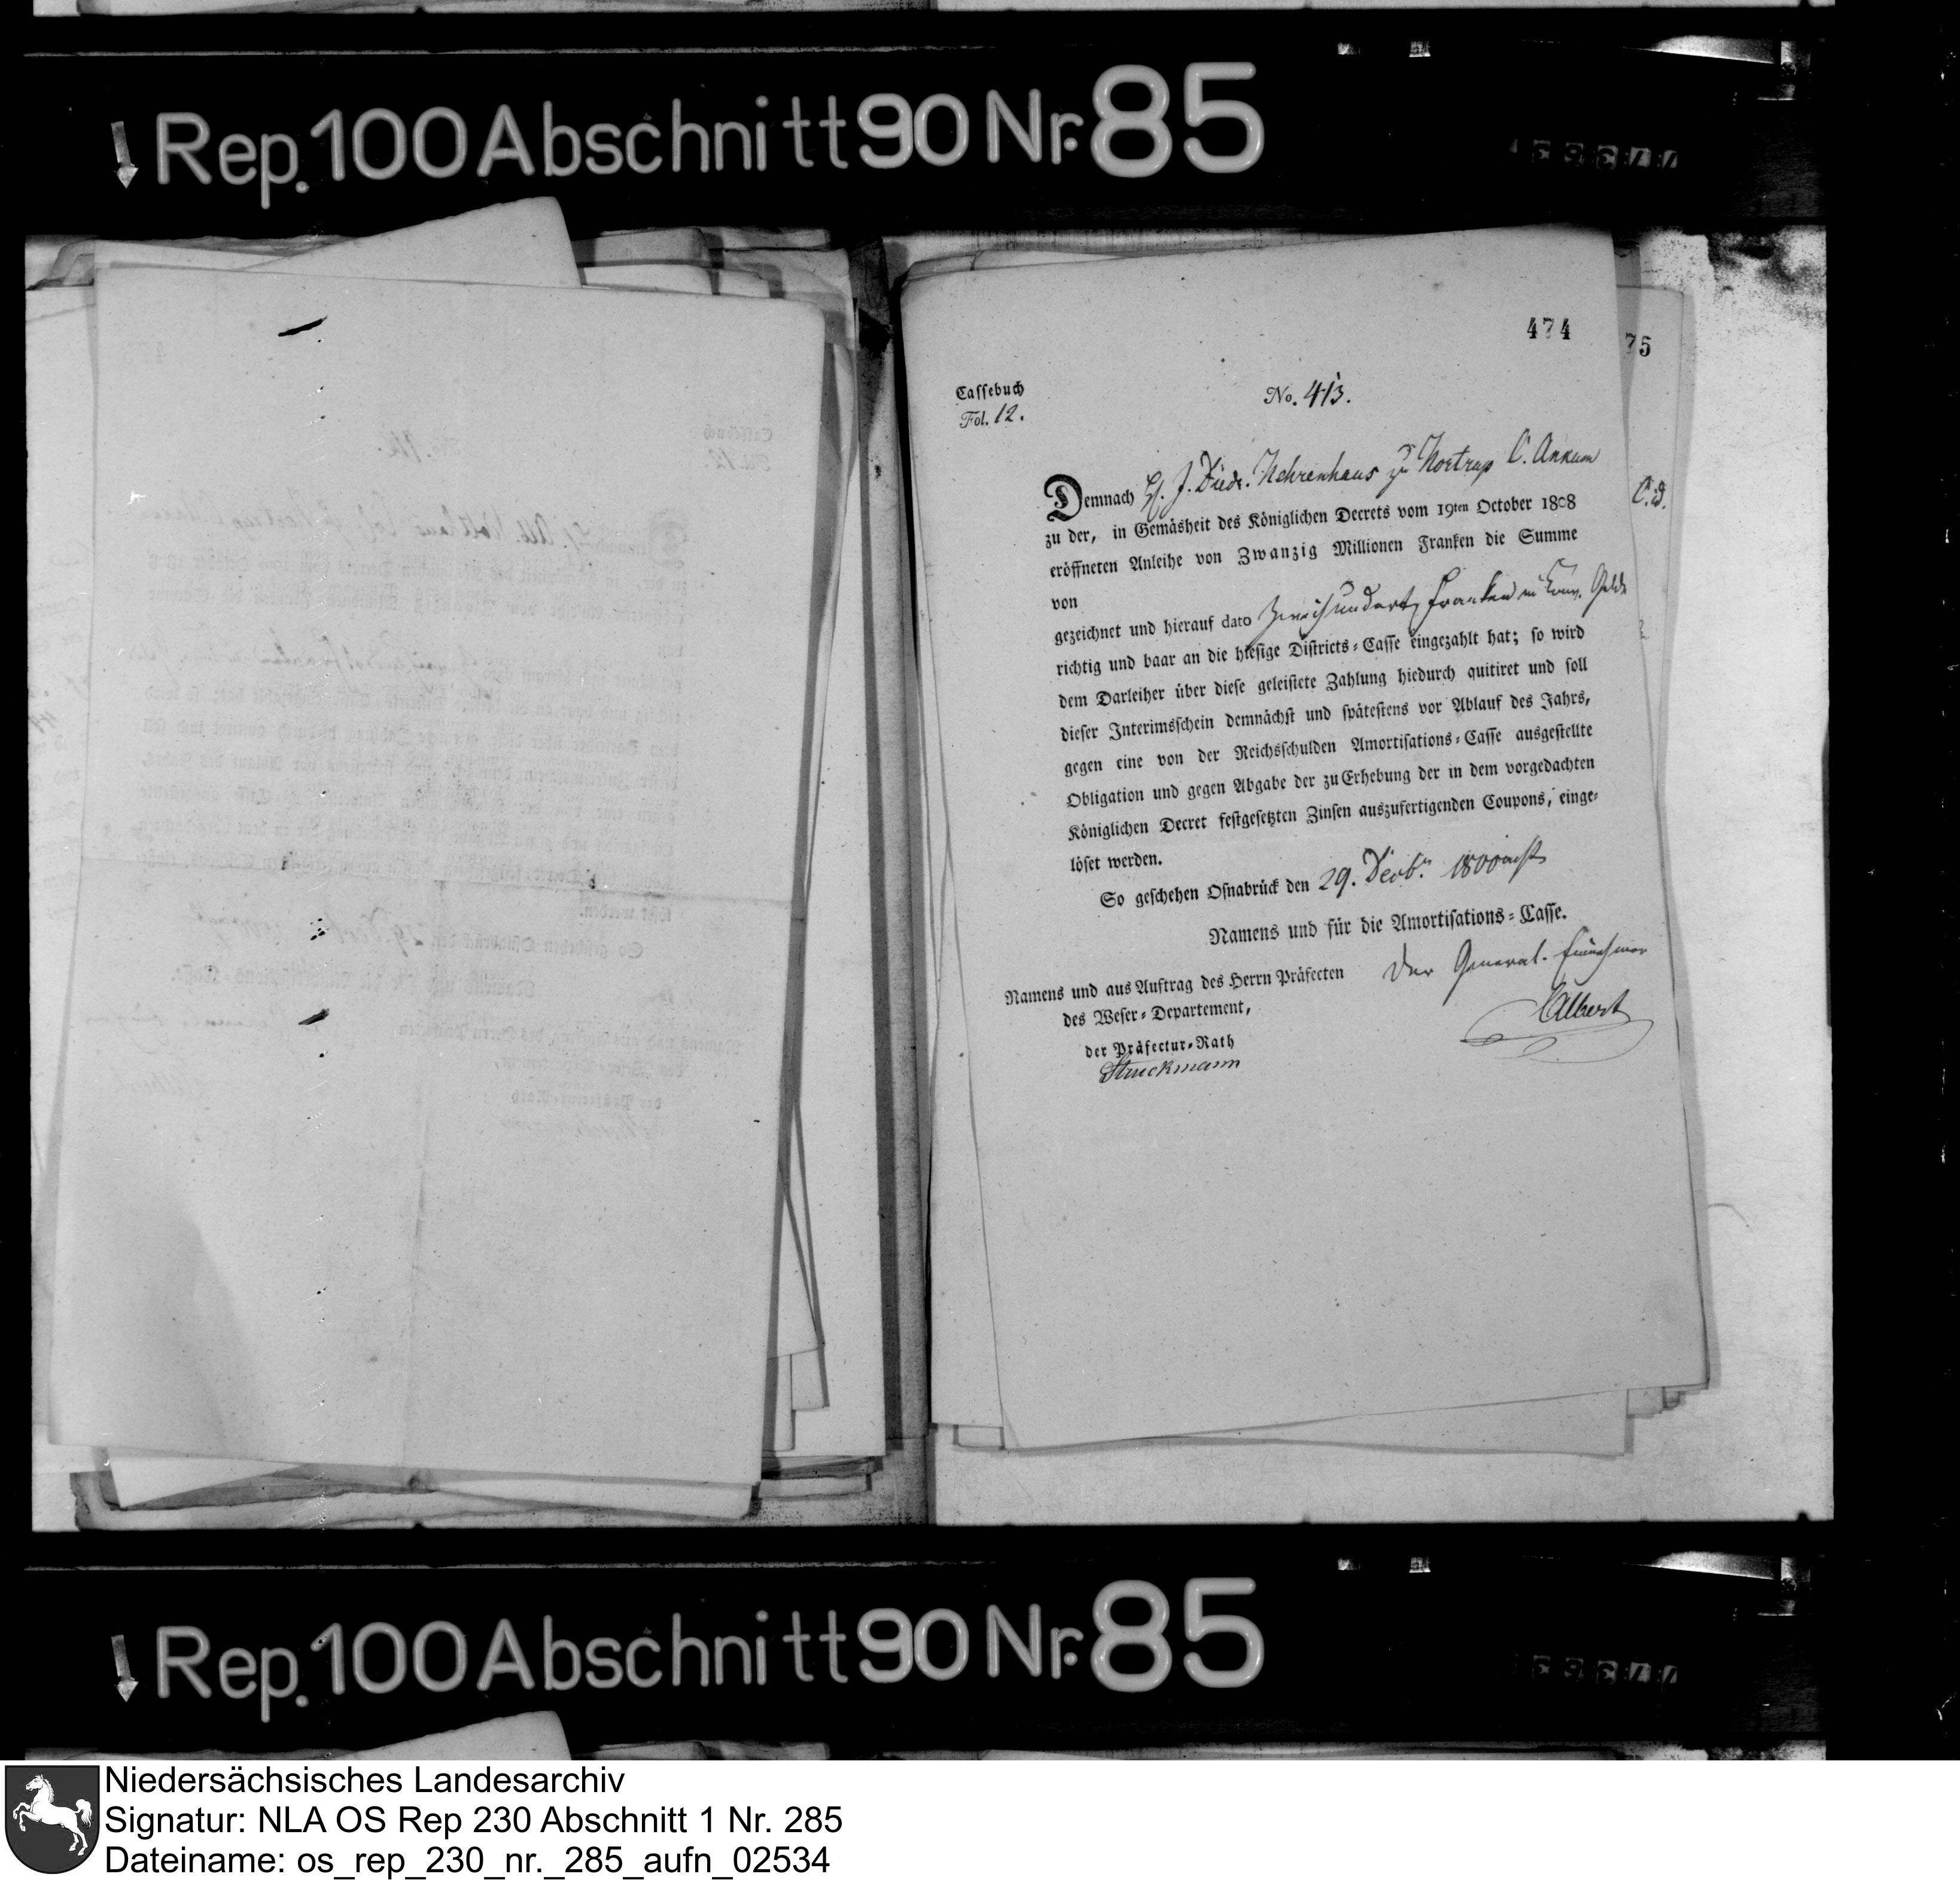 Rep. 100 Abschnitt 90 Nr. 85
474
75
Cassebuch
Fol. 12.
No. 413.
Demnach J. Died. Nehrenhaus zu Nortrup C. Ankum
zu der, in Gemäsheit des Königlichen Decrets vom 19ten October 1808
eröffneten Anleihe von Zwanzig Millionen Franken die Summe
von
gezeichnet und hierauf dato Zweihundert Franken in Conv. Gelde
richtig und baar an die hiesige Districts-Casse eingezahlt hat; so wird
dem Darleiher über diese geleistete Zahlung hiedurch quitiret und soll
dieser Interimsschein demnächst und spätestens vor Ablauf des Jahrs,
gegen eine von der Reichsschulden Amortisations-Casse ausgestellte
Obligation und gegen Abgabe der zu Erhebung der in dem vorgedachten
Königlichen Decret festgesetzten Zinsen auszufertigenden Coupons, einge-
löset werden.
So geschehen Osnabrück den 29. Decbr. 1800 acht
Namens und für die Amortisations-Casse.
Der General-Einnehmer
Albert
Namens und aus Auftrag des Herrn Präfecten
des Weser-Departement,
der Präfectur-Rath
Struckmann
Rep. 100 Abschnitt 90 Nr. 85
Niedersächsisches Landesarchiv
Signatur: NLA OS Rep 230 Abschnitt 1 Nr. 285
Dateiname: os_rep_230_nr._285_aufn_02534